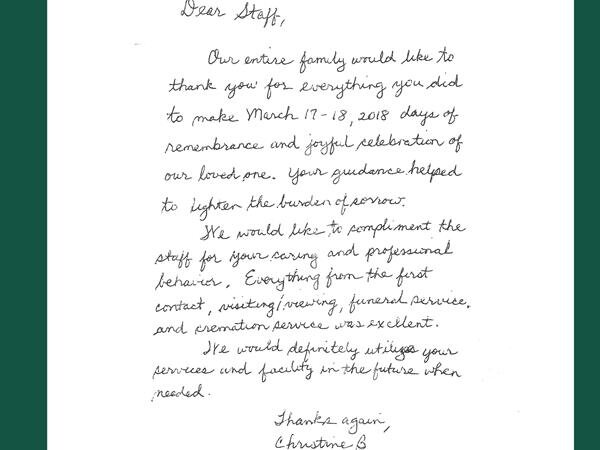 Dear Staff,
Our entire family would like to
thank you for everything you did
to make March 17-18, 2018 days of
remembrance and joyful celebration of
our loved one. Your guidance helped
to lighten the burden of sorrow.
We would like to compliment the
staff for your caring and professional
behavior. Everything from the first
contact, visiting/viewing, funeral service,
and cremation service was excellent.
We would definitely utilize your
services and facility in the future when
needed.
Thanks again,
Christine B